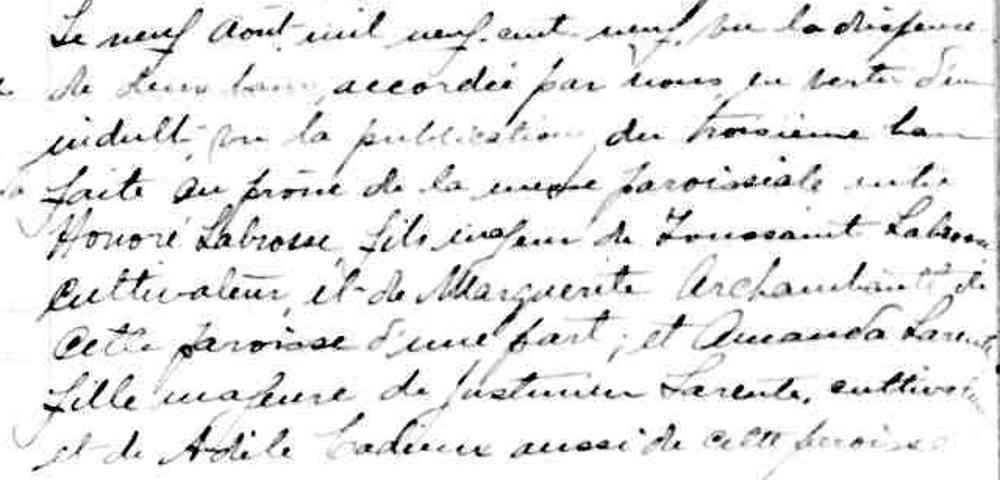 Le neuf Août mil neuf cent neuf, vu la dispense
de deux bans accordée par nous en vertu d'un
indult, vu la publication du troisième ban
faite au prône de la messe paroissiale entre
Honoré Labrosse, fils majeur de Toussaint Labrosse
cultivateur, et de Marguerite Archambault de
cette paroisse d'une part; et Amanda Larente
fille majeure de Justinien Larente, cultivateur
et de Adile Cadieux aussi de cette paroisse